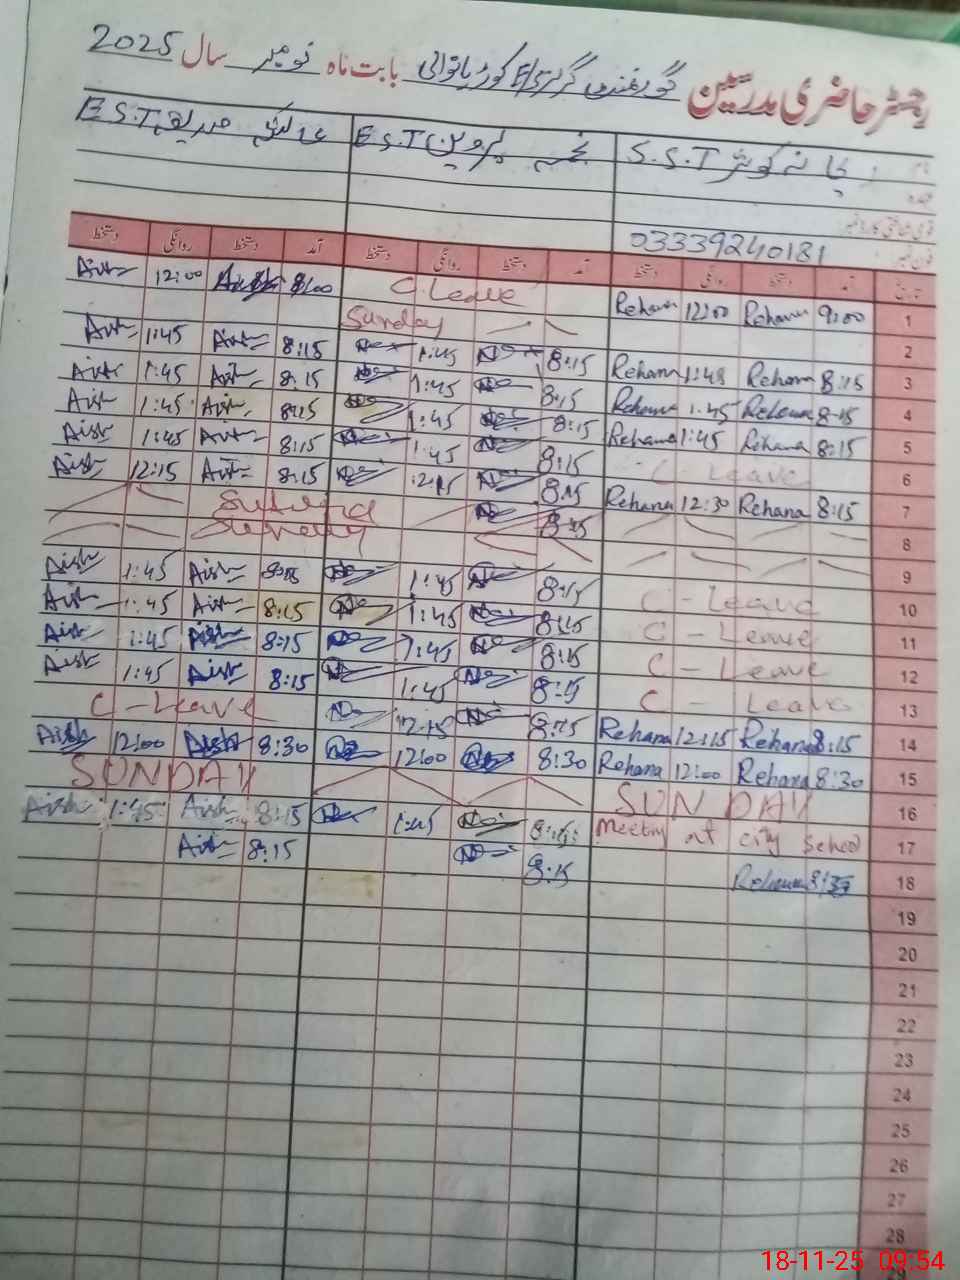 رجسٹر حاضری مدرسین گورنمنٹ گرلز E/S کوڑیانوالی بابت ماہ نومبر سال 2025
ریحانہ کوثر S.S.T نجمہ پروین E.S.T عائشہ صدیقہ E.S.T
نام
عہدہ
قومی شناختی کارڈ نمبر
فون نمبر 03339240181
تاریخ آمد دستخط روانگی دستخط آمد دستخط روانگی دستخط آمد دستخط روانگی دستخط
1 9:00 Rehana 12:00 Rehana C.Leave 8:00 Aish 12:00 Aish
2 Sunday
3 8:15 Rehana 1:45 Rehana 8:15 1:45 8:15 Aish 1:45 Aish
4 8:15 Rehana 1:45 Rehana 8:15 1:45 8:15 Aish 1:45 Aish
5 8:15 Rehana 1:45 Rehana 8:15 1:45 8:15 Aish 1:45 Aish
6 C - Leave 8:15 1:45 8:15 Aish 1:45 Aish
7 8:15 Rehana 12:30 Rehana 8:15 12:15 8:15 Aish 12:15 Aish
8 8:15
9 Sunday
10 C - Leave 8:15 1:45 8:15 Aish 1:45 Aish
11 C - Leave 8:15 1:45 8:15 Aish 1:45 Aish
12 C - Leave 8:15 1:45 8:15 Aish 1:45 Aish
13 C - Leave 8:15 1:45 8:15 Aish 1:45 Aish
14 8:15 Rehana 12:15 Rehana 8:15 12:15 C - Leave
15 8:30 Rehana 12:00 Rehana 8:30 12:00 8:30 Aish 12:00 Aish
16 SUNDAY SUNDAY
17 Meeting at city School 8:15 1:45 8:15 Aish 1:45 Aish
18 Rehana 8:15 8:15 Aish
19
20
21
22
23
24
25
26
27
28
18-11-25 09:54